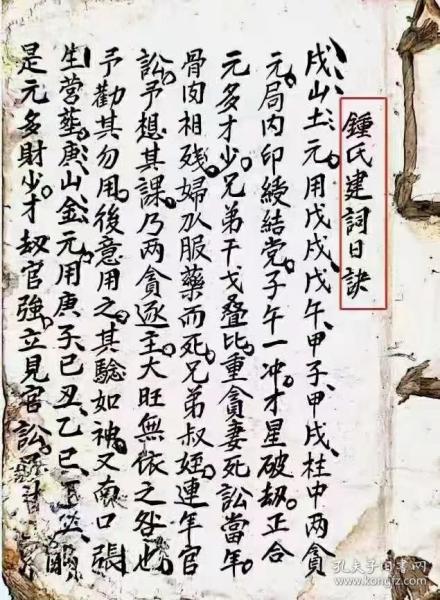 鍾氏建詞日訣
戌山土元用戊戌戊午甲子甲戌柱中两貪
元局内印綬結党子午一冲才星破刼正合
元多才少兄弟干戈叠比重貪妻死訟當年
骨肉相残婦以服藥而死兄弟叔姪連年官
訟予想其課乃两貪逐主大旺無依之咎也
予勸其勿用後意用之其驗如神又南口張
生营葬庚山金元用庚子己丑乙巳
是元多財少才刼官強立見官訟
孔夫子旧书网
www.kongfz.com